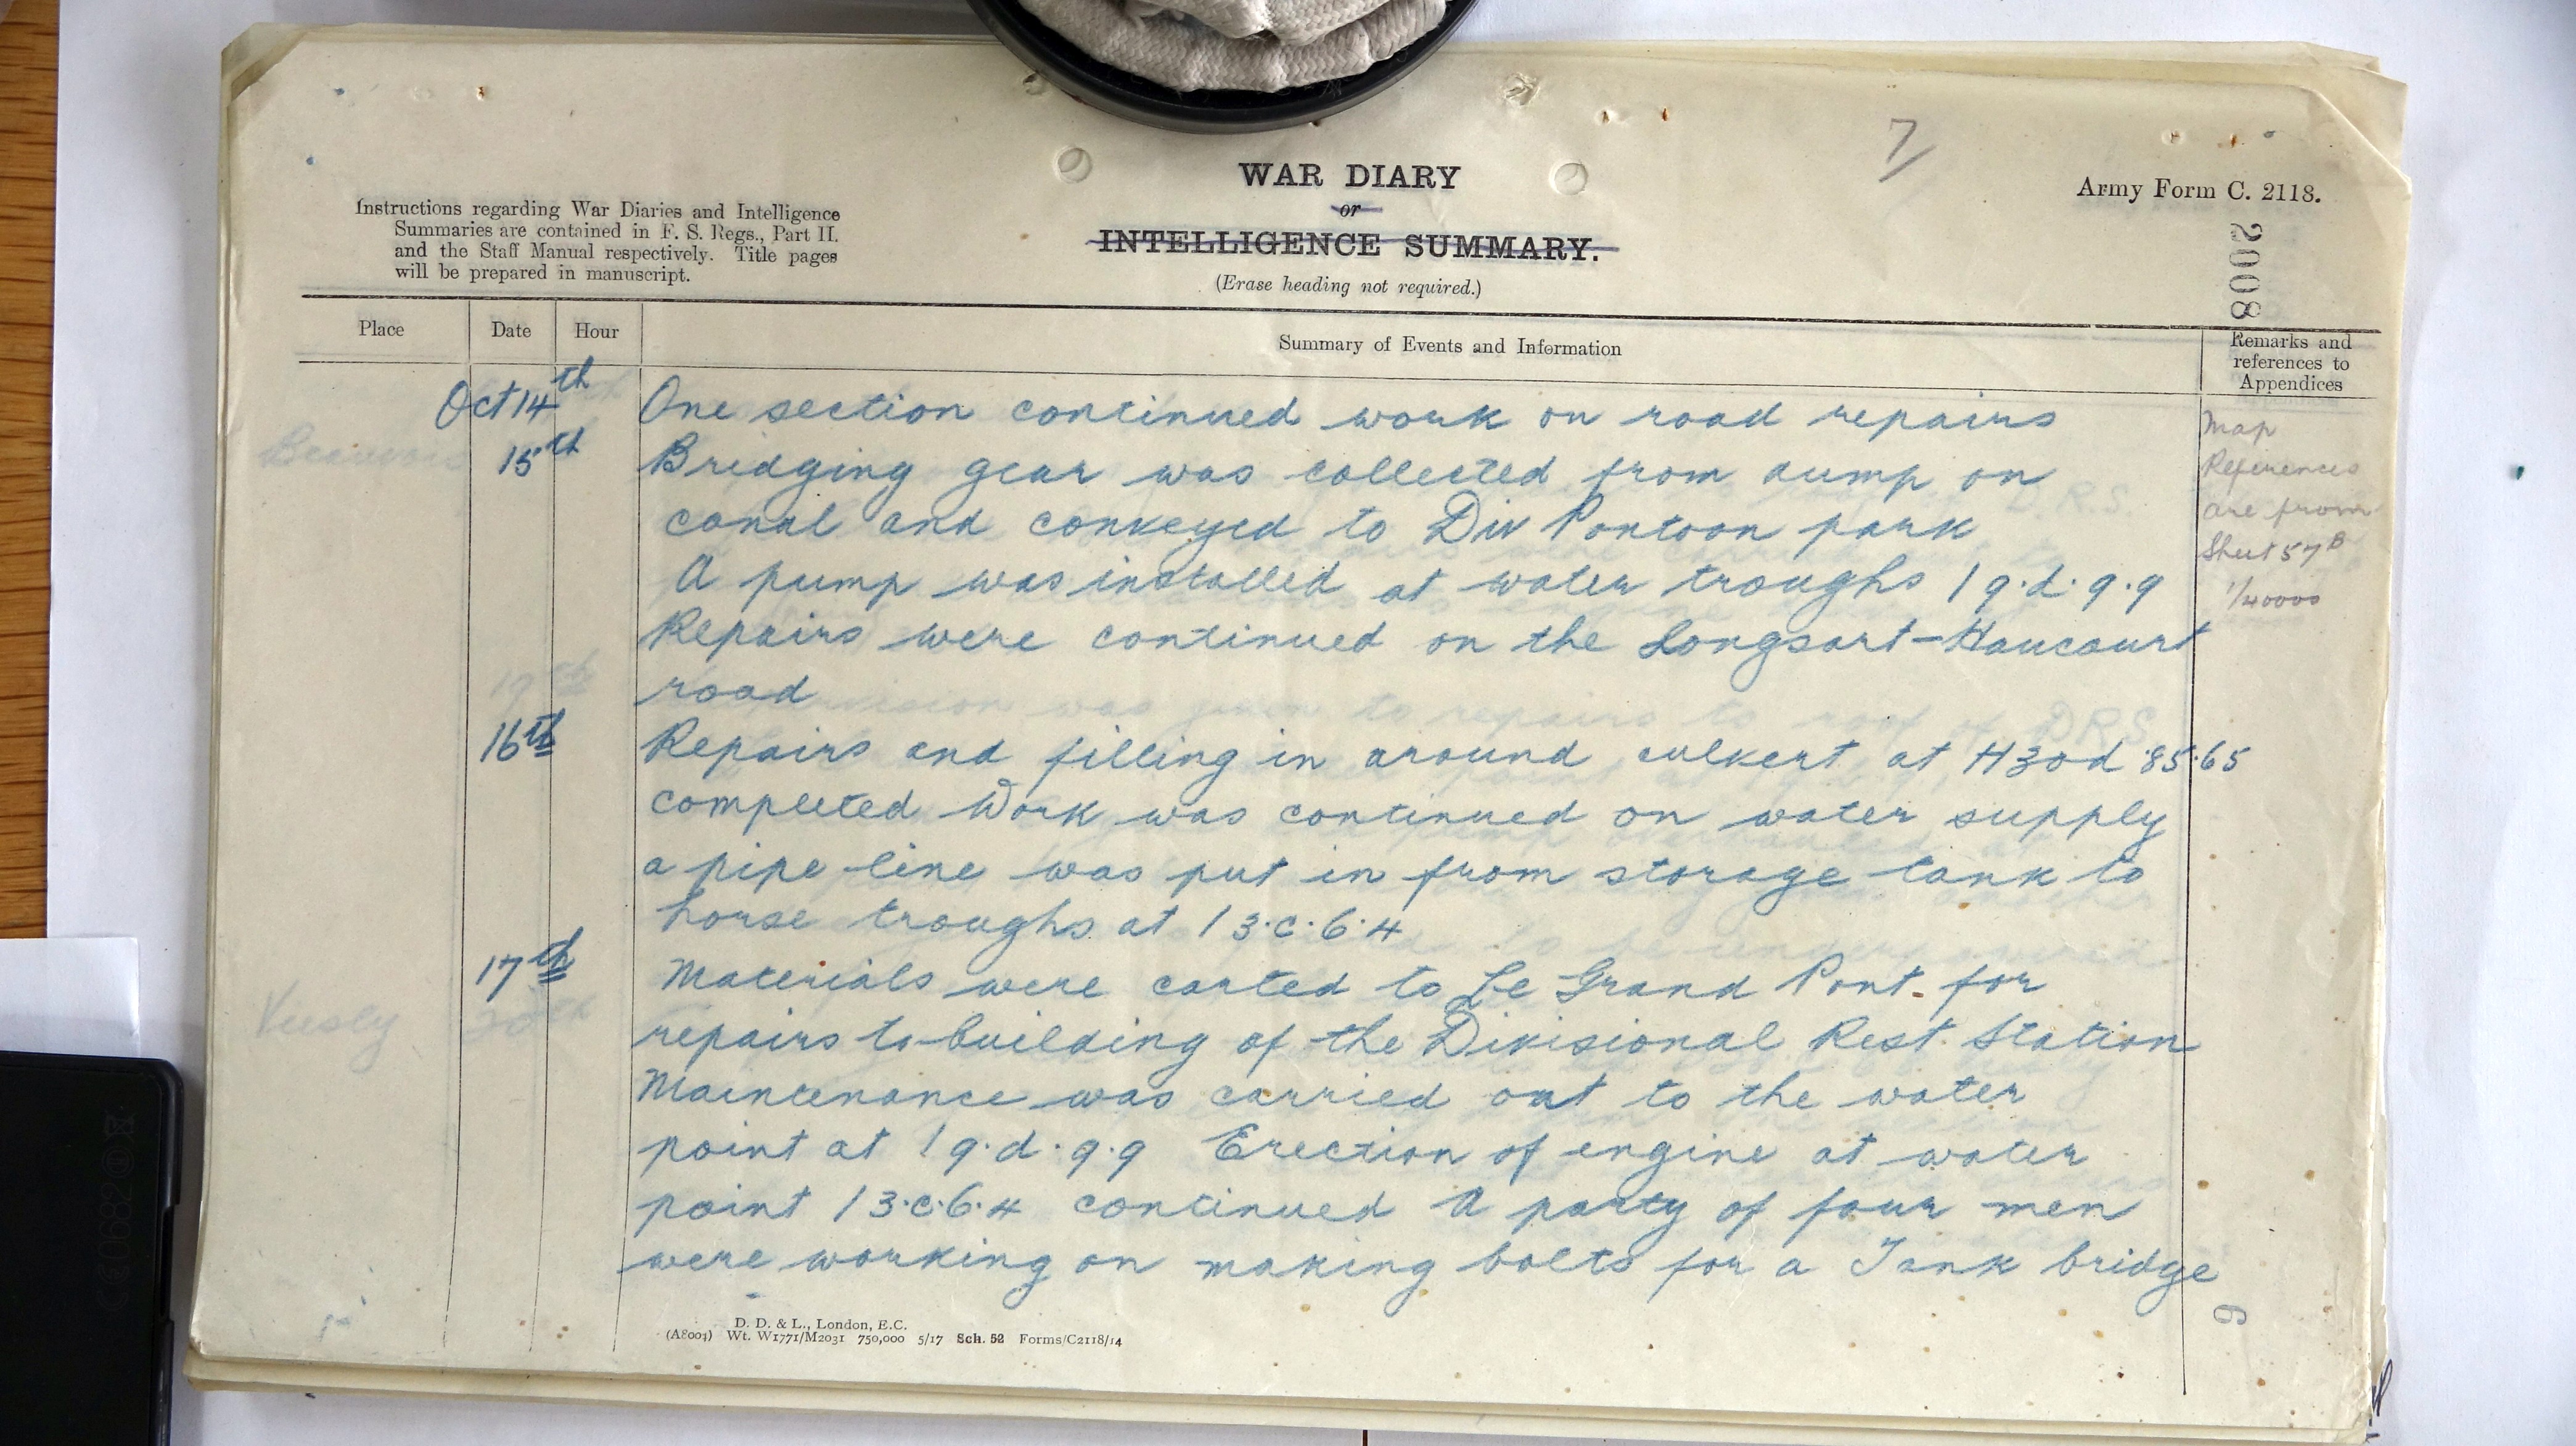 7/
Army Form C. 2118.
2008
WAR DIARY
or
INTELLIGENCE SUMMARY.
(Erase heading not required.)
Instructions regarding War Diaries and Intelligence
Summaries are contained in F. S. Regs., Part II.
and the Staff Manual respectively. Title pages
will be prepared in manuscript.
Place Date Hour Summary of Events and Information
Remarks and
references to
Appendices
Oct 14th One section continued work on road repairs
15th Bridging gear was collected from dump on
canal and conveyed to Div Pontoon park
A pump was installed at water troughs I 9.d.9.9
Repairs were continued on the Longsart-Haucourt
road
16th Repairs and filling in around culvert at H30d 85.65
completed Work was continued on water supply
a pipe line was put in from storage tank to
horse troughs at I 3.c.6.4
17th Materials were carted to Le Grand Pont. for
repairs to building of the Divisional Rest Station
Maintenance was carried out to the water
point at I 9.d.9.9 Erection of engine at water
point I 3.c.6.4 continued A party of four men
were working on making bolts for a Tank bridge
Map
References
are from
Sheet 57B
1/40000
D. D. & L., London, E.C.
(A8004) Wt. W1771/M2031 750,000 5/17 Sch. 52 Forms/C2118/14
9